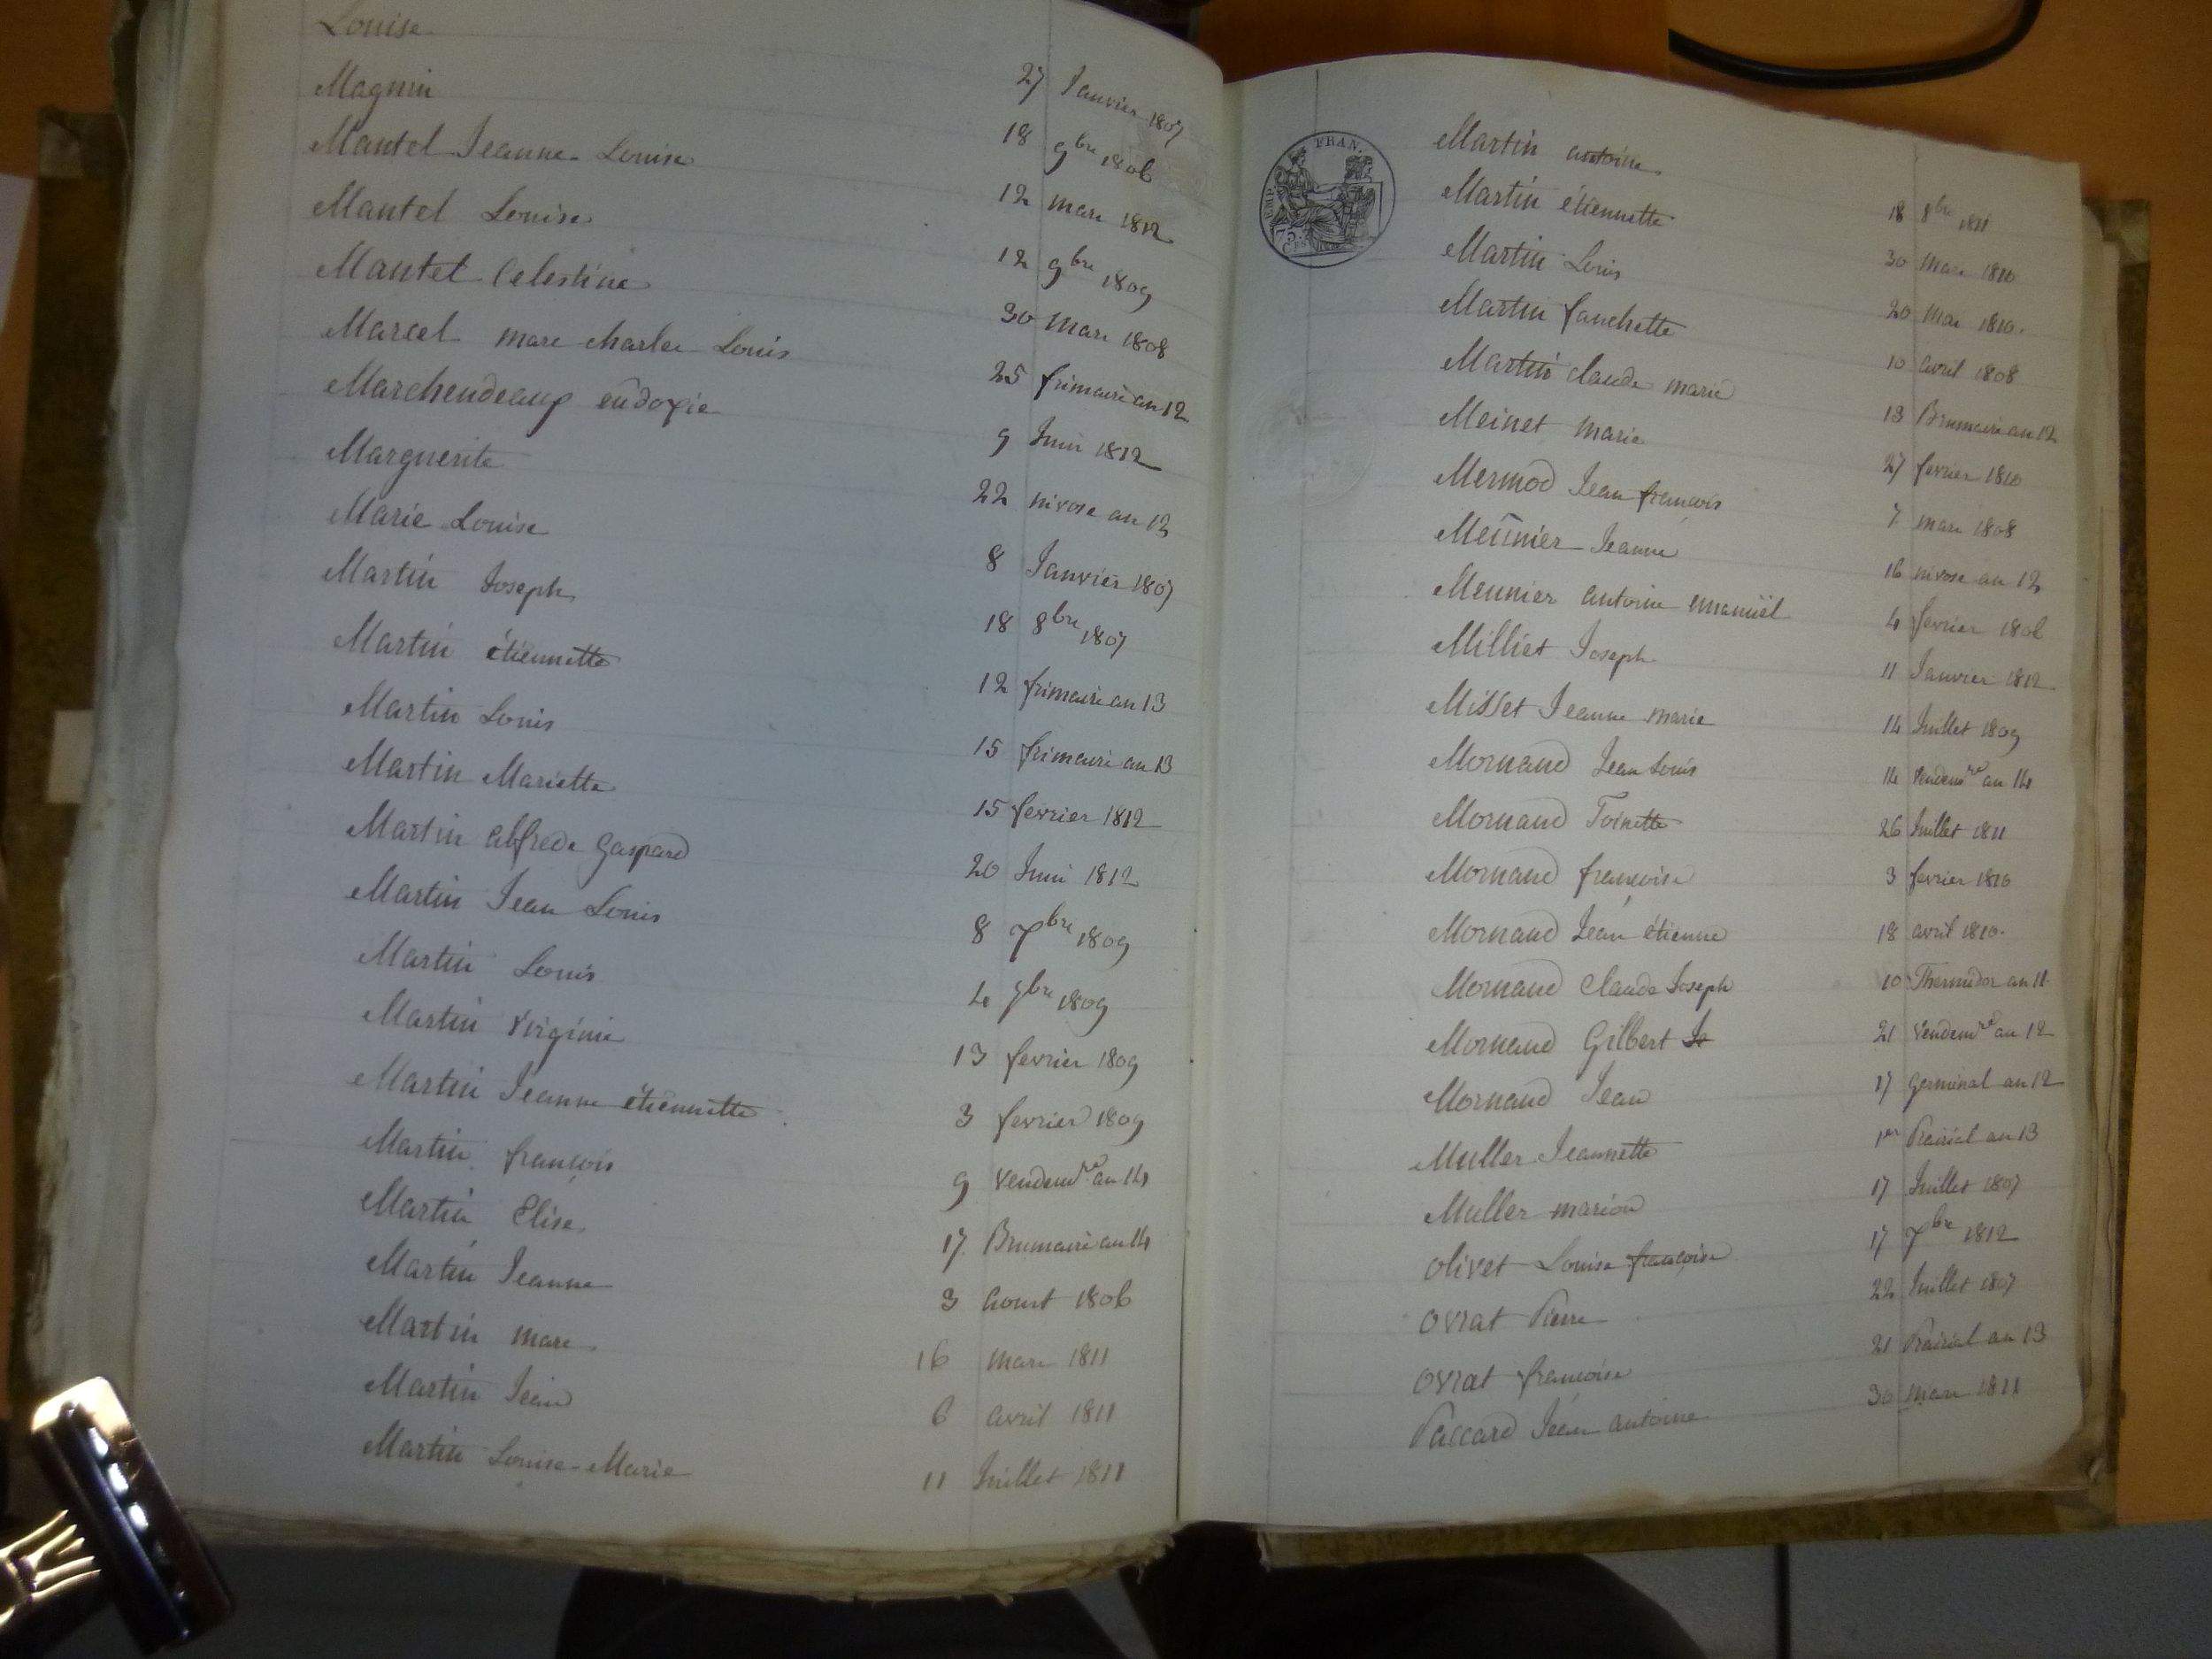 Louise 27 Janvier 1807
Magnin 18 9bre 1806
Mantel Jeanne Louise 12 mars 1812
Mantel Louise 12 9bre 1809
Mantel Celestine 30 mars 1808
Marcel marc charles Louis 25 frimaire an 12
Marchendeaux eudoxie 9 Juin 1812
Marguerite 22 nivose an 12
Marie Louise 8 Janvier 1807
Martin Joseph 18 8bre 1807
Martin étiennette 12 frimaire an 13
Martin Louis 15 frimaire an 13
Martin Mariette 15 fevrier 1812
Martin alfrede gaspard 20 Juin 1812
Martin Jean Louis 8 7bre 1809
Martin Louis 4 9bre 1809
Martin Virginie 13 fevrier 1809
Martin Jeanne étiennette 3 fevrier 1809
Martin françois 9 vendemre an 14
Martin Elise 17 Brumaire an 14
Martin Jeanne 3 aoust 1806
Martin marc 16 mars 1811
Martin Jean 6 avril 1811
Martin Louise-Marie 11 Juillet 1811
EMP. FRAN.
Martin antoine 18 8bre 1811
Martin étiennette 30 mars 1810
Martin Louis 20 mai 1810.
Martin fanchette 10 avril 1808
Martin claude marie 13 Brumaire an 12
Meinet marie 27 fevrier 1810
Mermod Jean françois 7 mars 1808
Meunier Jeanne 16 nivose an 12
Meunier antoine emanuel 4 fevrier 1806
Milliet Joseph 11 Janvier 1812
Misset Jeanne marie 14 Juillet 1809
Mornand Jean Louis 14 vendemre an 14
Mornand Toinette 26 Juillet 1811
Mornand françoise 3 fevrier 1810
Mornand Jean étienne 18 avril 1810.
Mornand Claude Joseph 10 Thermidor an 11
Mornand Gilbert 21 vendemre an 12
Mornand Jean 17 germinal an 12
Muller Jeannette 1er Prairial an 13
Muller marion 17 Juillet 1807
olivet Louise françoise 17 7bre 1812
ovrat Pierre 22 Juillet 1807
ovrat françoise 21 Prairial an 13
Paccard Jean antoine 30 mars 1811